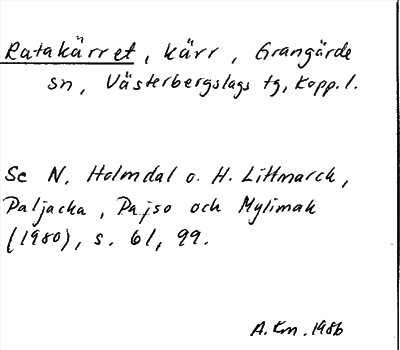 Ratakärret, kärr, Grangärde
sn, Västerbergslags tg, Kopp. l.
Se N. Holmdal o. H. Littmarck,
Paljacka, Pajso och Mylimak
(1980), s. 61, 99.
A. Km. 1986